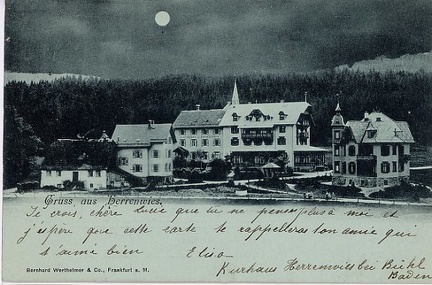 Gruss aus Herrenwies.
Je crois, chère Lucie que tu ne penses plus à moi et
j'espère que cette carte te rappellera ton amie qui
t'aime bien Elisa
Kurhaus Herrenwies bei Bühl
Baden
Bernhard Wertheimer & Co., Frankfurt a. M.